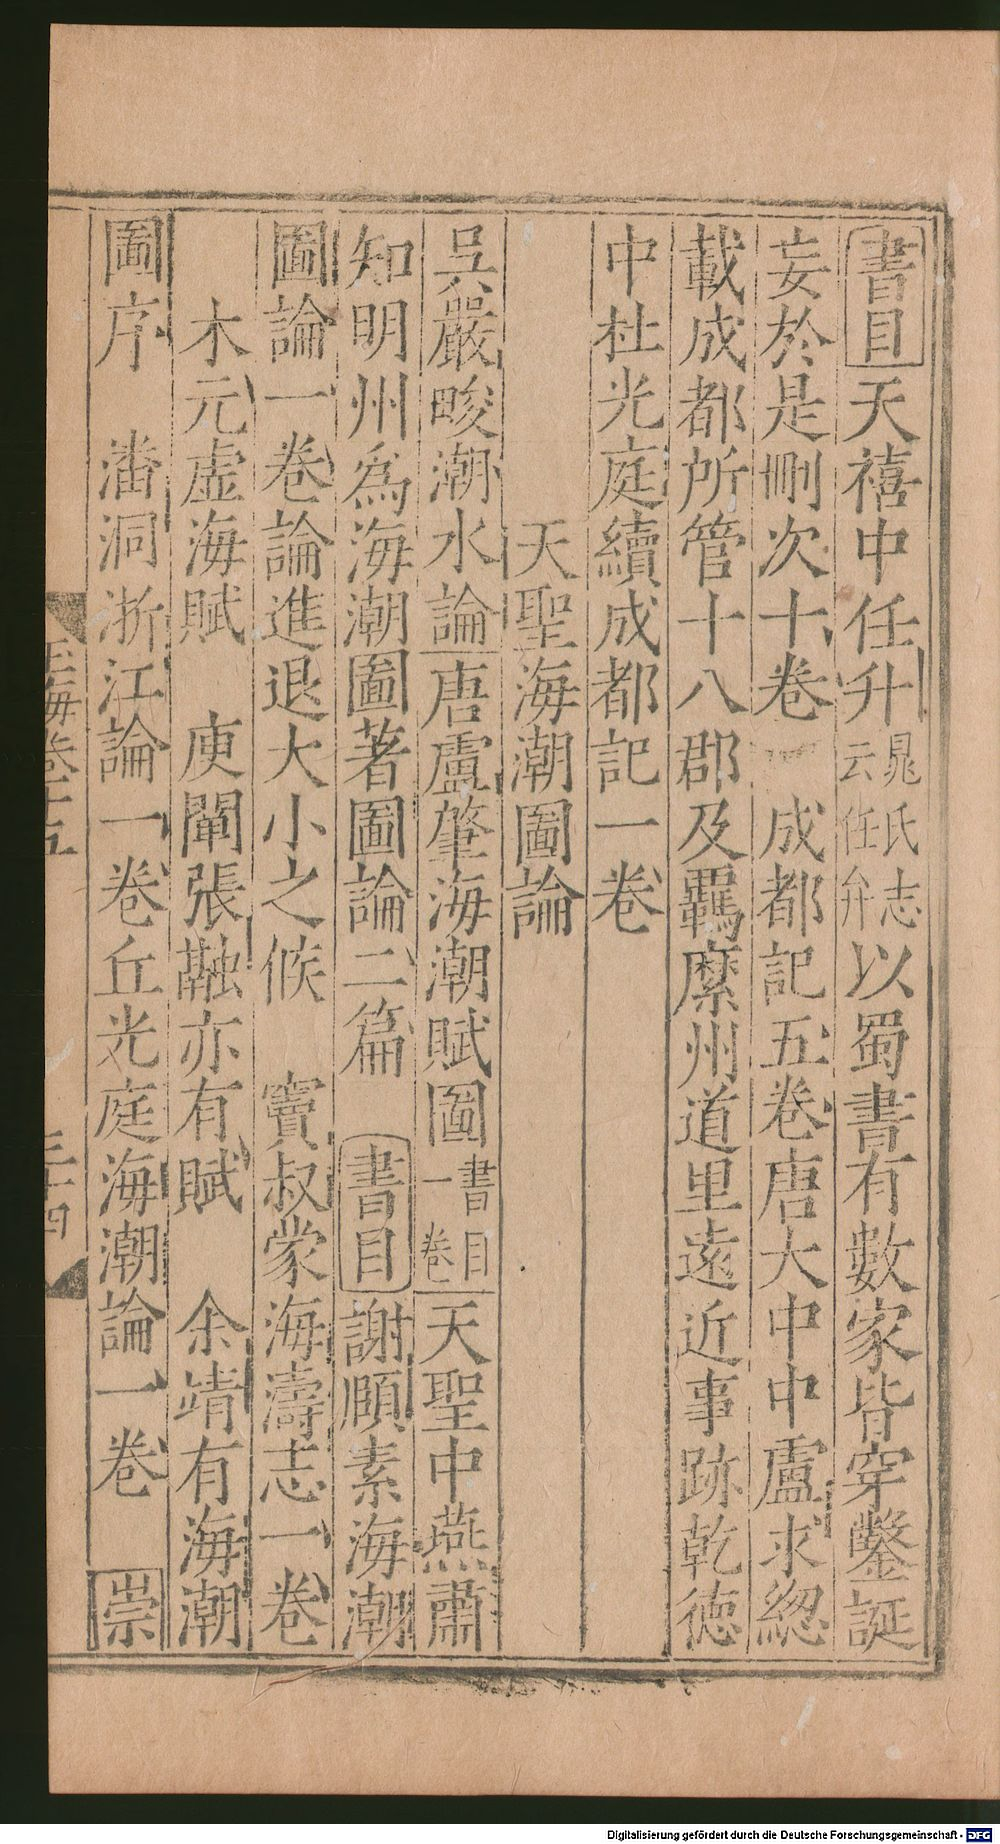 書目天禧中任升晁氏志云任弁以蜀書有數家皆穿鑿誕
妄於是刪次十卷　成都記五卷唐大中中盧求緫
載成都所管十八郡及羈縻州道里逺近事跡乾德
中杜光庭續成都記一卷
天聖海潮圖論
吳嚴畯潮水論唐盧肇海潮賦圖書目一卷天聖中燕肅
知明州爲海潮圖著圖論二篇　書目謝頋素海潮
圖論一卷論進退大小之候　竇叔蒙海濤志一卷
木元虛海賦　庾闡張融亦有賦　余靖有海潮
圖序　潘洞浙江論一卷丘光庭海潮論一卷　崇
玉海卷十五
三十四
Digitalisierung gefördert durch die Deutsche Forschungsgemeinschaft - DFG